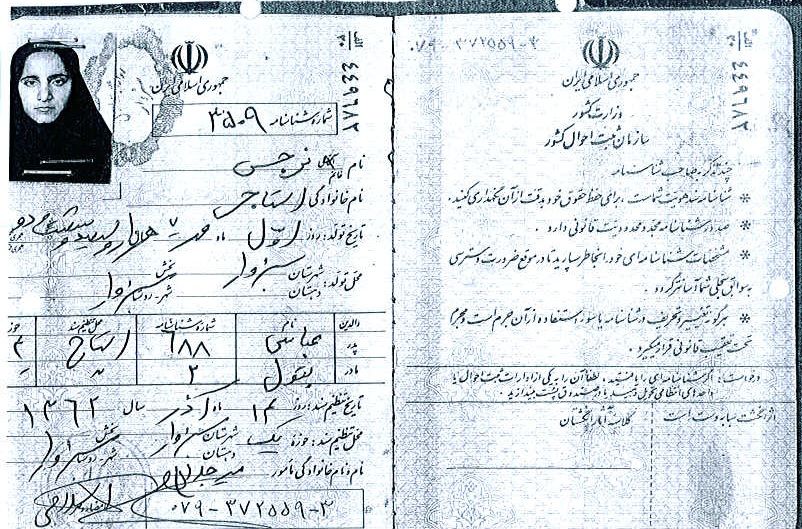 جمهوری اسلامی ایران
شماره شناسنامه ۳۵۰۹
۴۴۹۶۸۲
نام آقای خانم نرجس
نام خانوادگی استاجی
تاریخ تولد: روز اول ماه مهر یکهزار و سیصد و شصت و دو
محل تولد: شهرستان سبزوار بخش
دهستان شهر-روستا سبزوار
والدین نام شماره شناسنامه محل تنظیم سند حوزه
پدر عباس ۶۸۸ استاج
مادر بتول ۲
تاریخ تنظیم سند: روز ماه آذر سال ۱۳۶۲
محل تنظیم سند: حوزه یک شهرستان سبزوار بخش
دهستان شهر-روستا سبزوار
نام و نام خانوادگی مأمور
۰۷۹-۳۷۲۵۵۹-۳
۰۷۹-۳۷۲۵۵۹-۳
۴۴۹۶۸۲
جمهوری اسلامی ایران
وزارت کشور
سازمان ثبت احوال کشور
چند تذکر به صاحب شناسنامه
* شناسنامه سند هویت شماست، برای حفظ حقوق خود به دقت از آن نگهداری کنید.
* صدور شناسنامه مجدد محدودیت قانونی دارد.
* مشخصات شناسنامه‌ای خود را بخاطر بسپارید تا در موقع ضرورت دسترسی
به سوابق سجلی شما آسانتر گردد.
* هرگونه تغییر و تحریف در شناسنامه یا سوء استفاده از آن جرم است و مجرم
تحت تعقیب قانونی قرار میگیرد.
درخواست: اگر شناسنامه‌ای را یافتید، لطفا آن را به یکی از ادارات ثبت احوال یا
واحدهای انتظامی تحویل دهید یا در صندوق پست بیندازید.
اثر انگشت سبابه دست است
کلاسه آثار انگشتان